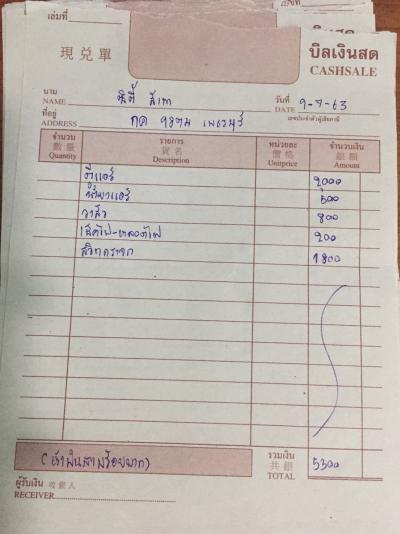 เล่มที่
現兌單
บิลเงินสด
CASHSALE
นาม
NAME
วันที่
DATE 9-7-63
ที่อยู่
ADDRESS
เลขประจำตัวผู้เสียภาษี
จำนวน รายการ หน่วยละ จำนวนเงิน
數量 貨名 價格 銀額
Quantity Description Unitprice Amount
ตู้แอร์ 2000
น้ำยาแอร์ 500
วาล์ว 800
เช็คไฟ-หลอดไฟ 200
1800
(ห้าพันสามร้อยบาท)
รวมเงิน
共銀
TOTAL 5300
ผู้รับเงิน 收銀人
RECEIVER